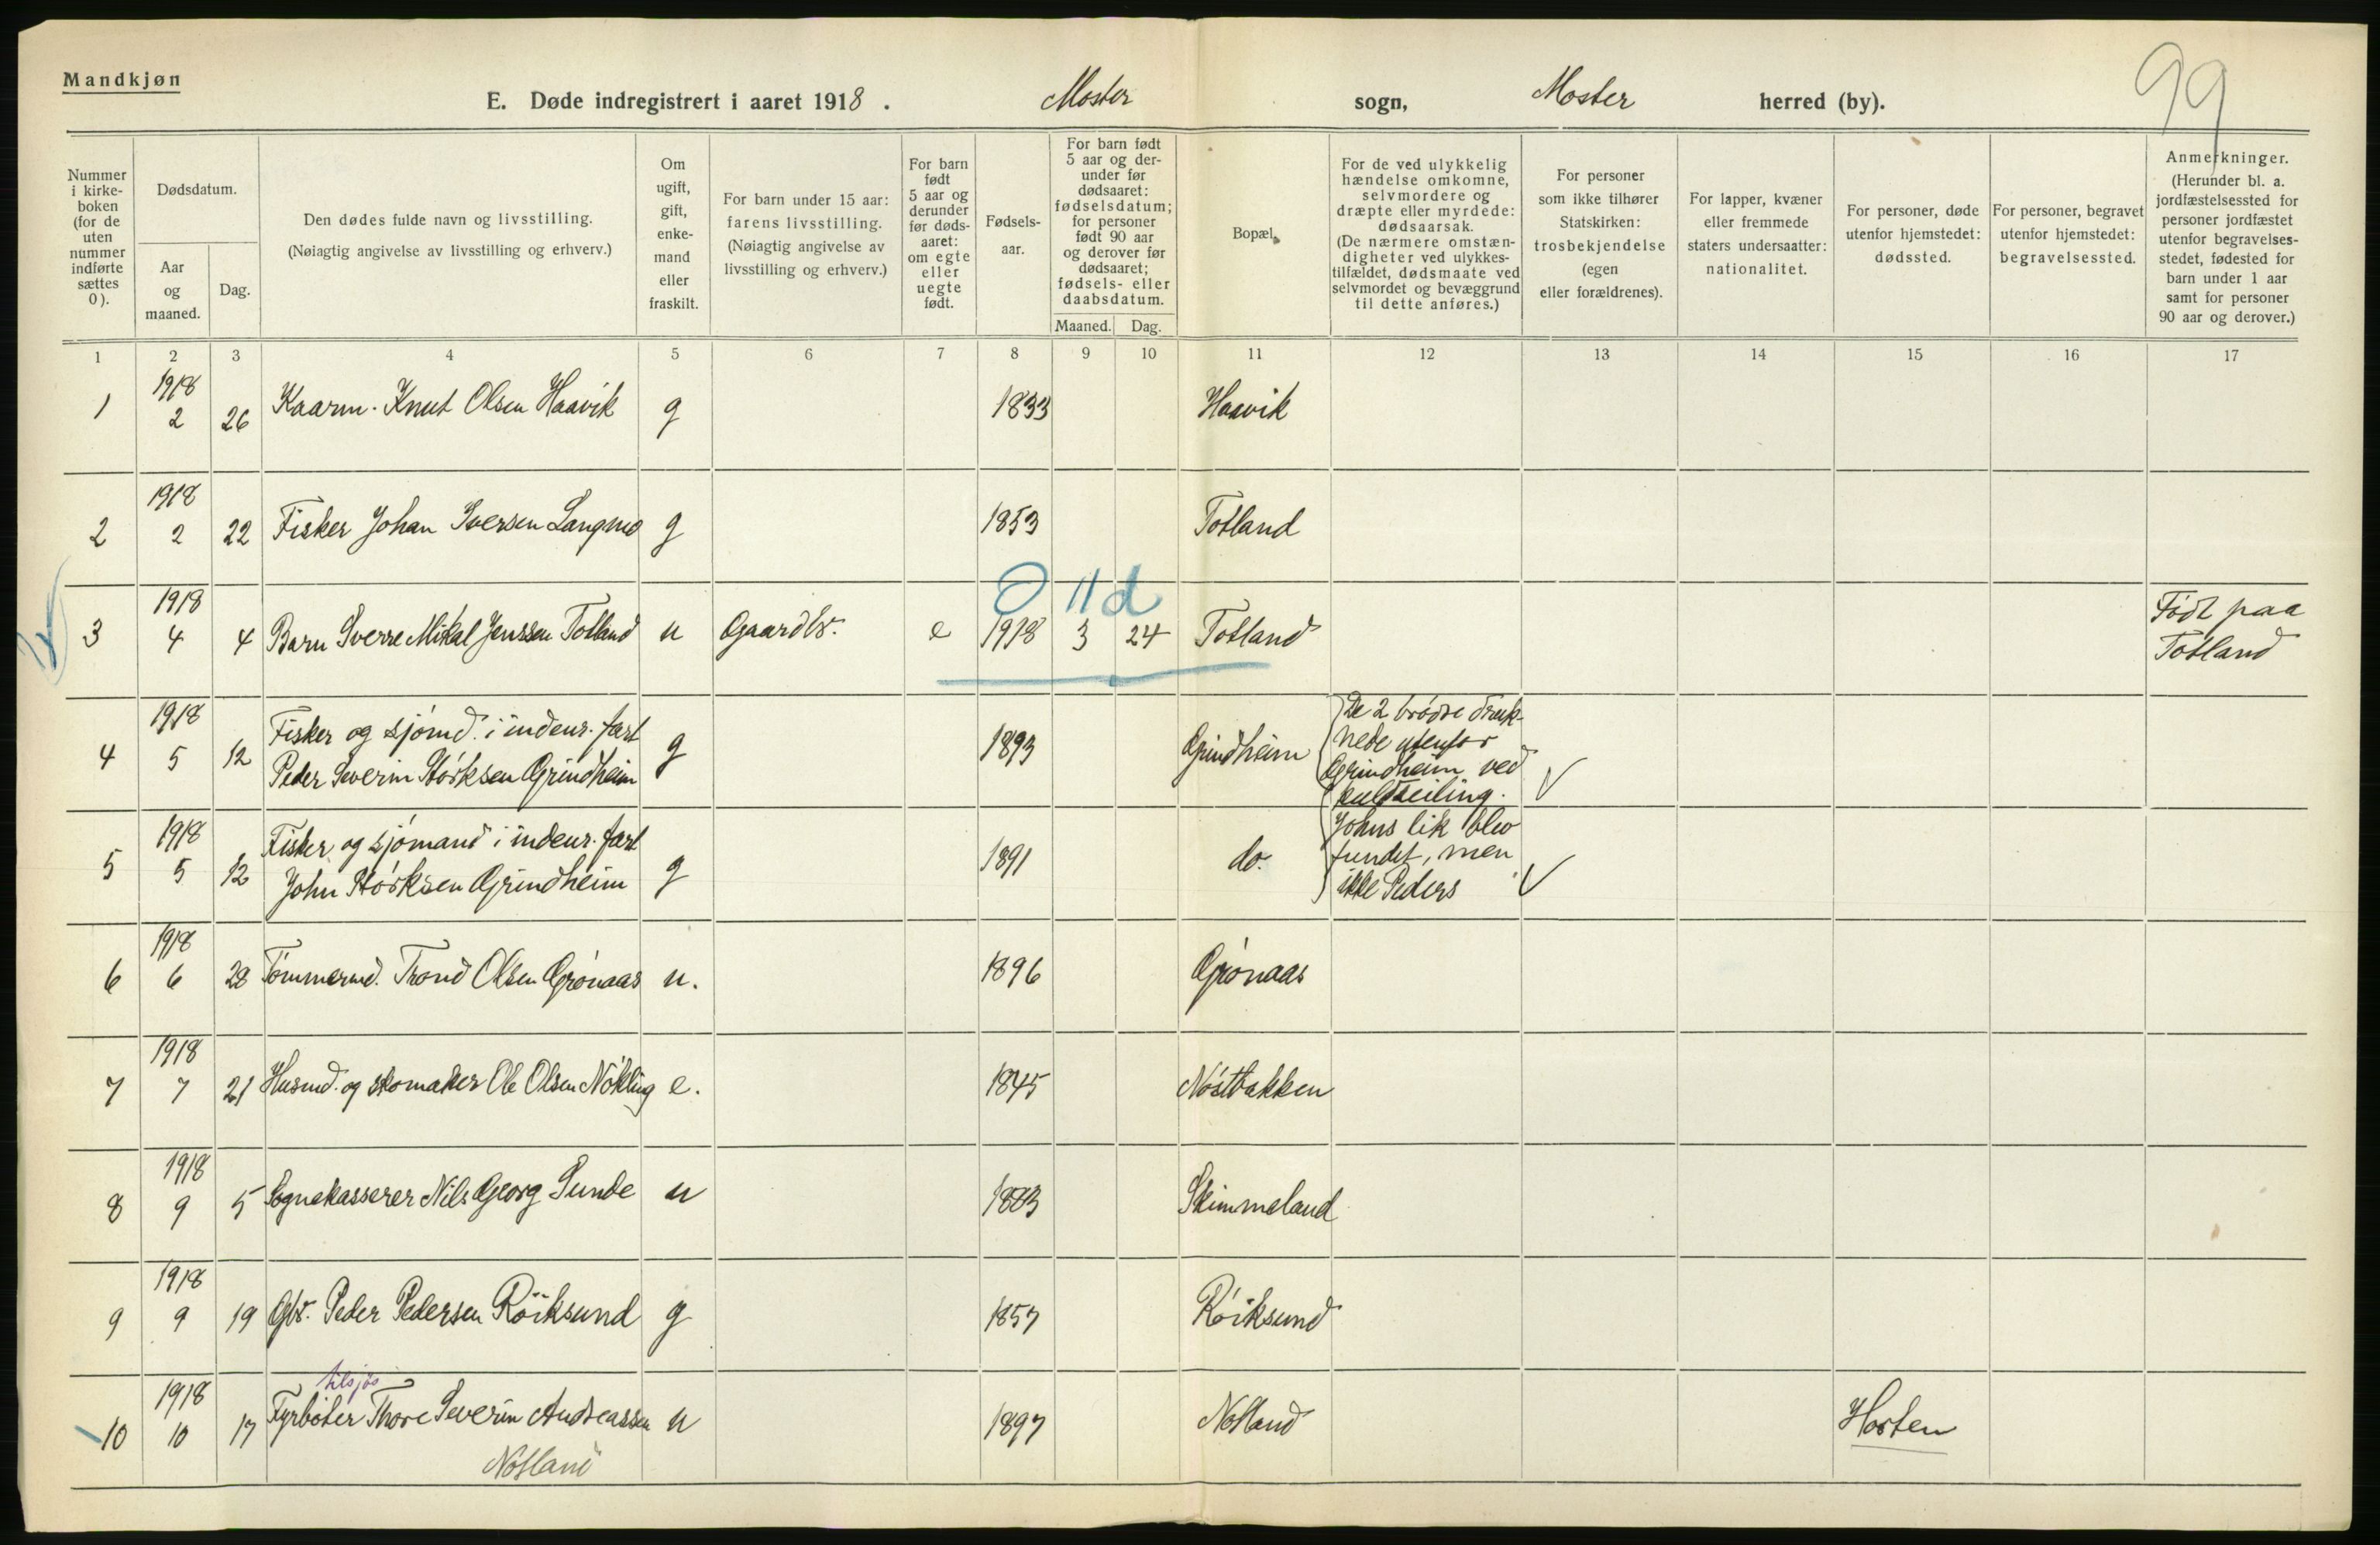 Mandkjøn
99
E. Døde indregistrert i aaret 1918. Moster sogn, Moster herred (by).
Nummer i kirke- boken (for de uten nummer indførte sættes 0).
Dødsdatum.
Aar og maaned.
Dag.
Den dødes fulde navn og livsstilling. (Nøiagtig angivelse av livsstilling og erhverv.)
Om ugift, gift, enke- mand eller fraskilt.
For barn under 15 aar: farens livsstilling. (Nøiagtig angivelse av livsstilling og erhverv.)
For barn født 5 aar og derunder før døds- aaret: om egte eller uegte født.
Fødsels- aar.
For barn født 5 aar og der- under før dødsaaret: fødselsdatum; for personer født 90 aar og derover før dødsaaret; fødsels- eller daabsdatum.
Maaned. Dag.
Bopæl.
For de ved ulykkelig hændelse omkomne, selvmordere og dræpte eller myrdede: dødsaarsak. (De nærmere omstæn- digheter ved ulykkes- tilfældet, dødsmaate ved selvmordet og bevæggrund til dette anføres.)
For personer som ikke tilhører Statskirken: trosbekjendelse (egen eller forældrenes).
For lapper, kvæner eller fremmede staters undersaatter: nationalitet.
For personer, døde utenfor hjemstedet: dødssted.
For personer, begravet utenfor hjemstedet: begravelsessted.
Anmerkninger. (Herunder bl. a. jordfæstelsessted for personer jordfæstet utenfor begravelses- stedet, fødested for barn under 1 aar samt for personer 90 aar og derover.)
1 2 3 4 5 6 7 8 9 10 11 12 13 14 15 16 17
1 1918 2 26 Kaarm. Knut Olsen Haavik g 1833 Haavik
2 1918 2 22 Fisker Johan Iversen Langmo g 1853 Totland
0 11 d
3 1918 4 4 Barn Sverre Mikal Jenssen Totland u Gaardbr. e 1918 3 24 Totland Født paa Totland
4 1918 5 12 Fisker og sjømd. i indenr. fart
Peder Severin Størksen Grindheim g 1893 Grindheim
De 2 brødre druk-
nede utenfor
Grindheim ved
kuldseiling.
5 1918 5 12 Fisker og sjømand i indenr. fart
John Størksen Grindheim g 1891 do.
Johns lik blev
fundet, men
ikke Peders
6 1918 6 28 Tømmermd. Trond Olsen Grønaas u. 1896 Grønaas
7 1918 7 21 Husmd. og skomaker Ole Olsen Nøkling e. 1845 Nøstbakken
8 1918 9 5 Sognekasserer Nils Georg Sunde u 1883 Skimmeland
9 1918 9 19 Gbr. Peder Pedersen Röiksund g 1857 Røiksund
tilsjøs
10 1918 10 17 Fyrbøter Thore Severin Andreassen u 1897 Notland Horten
Notland